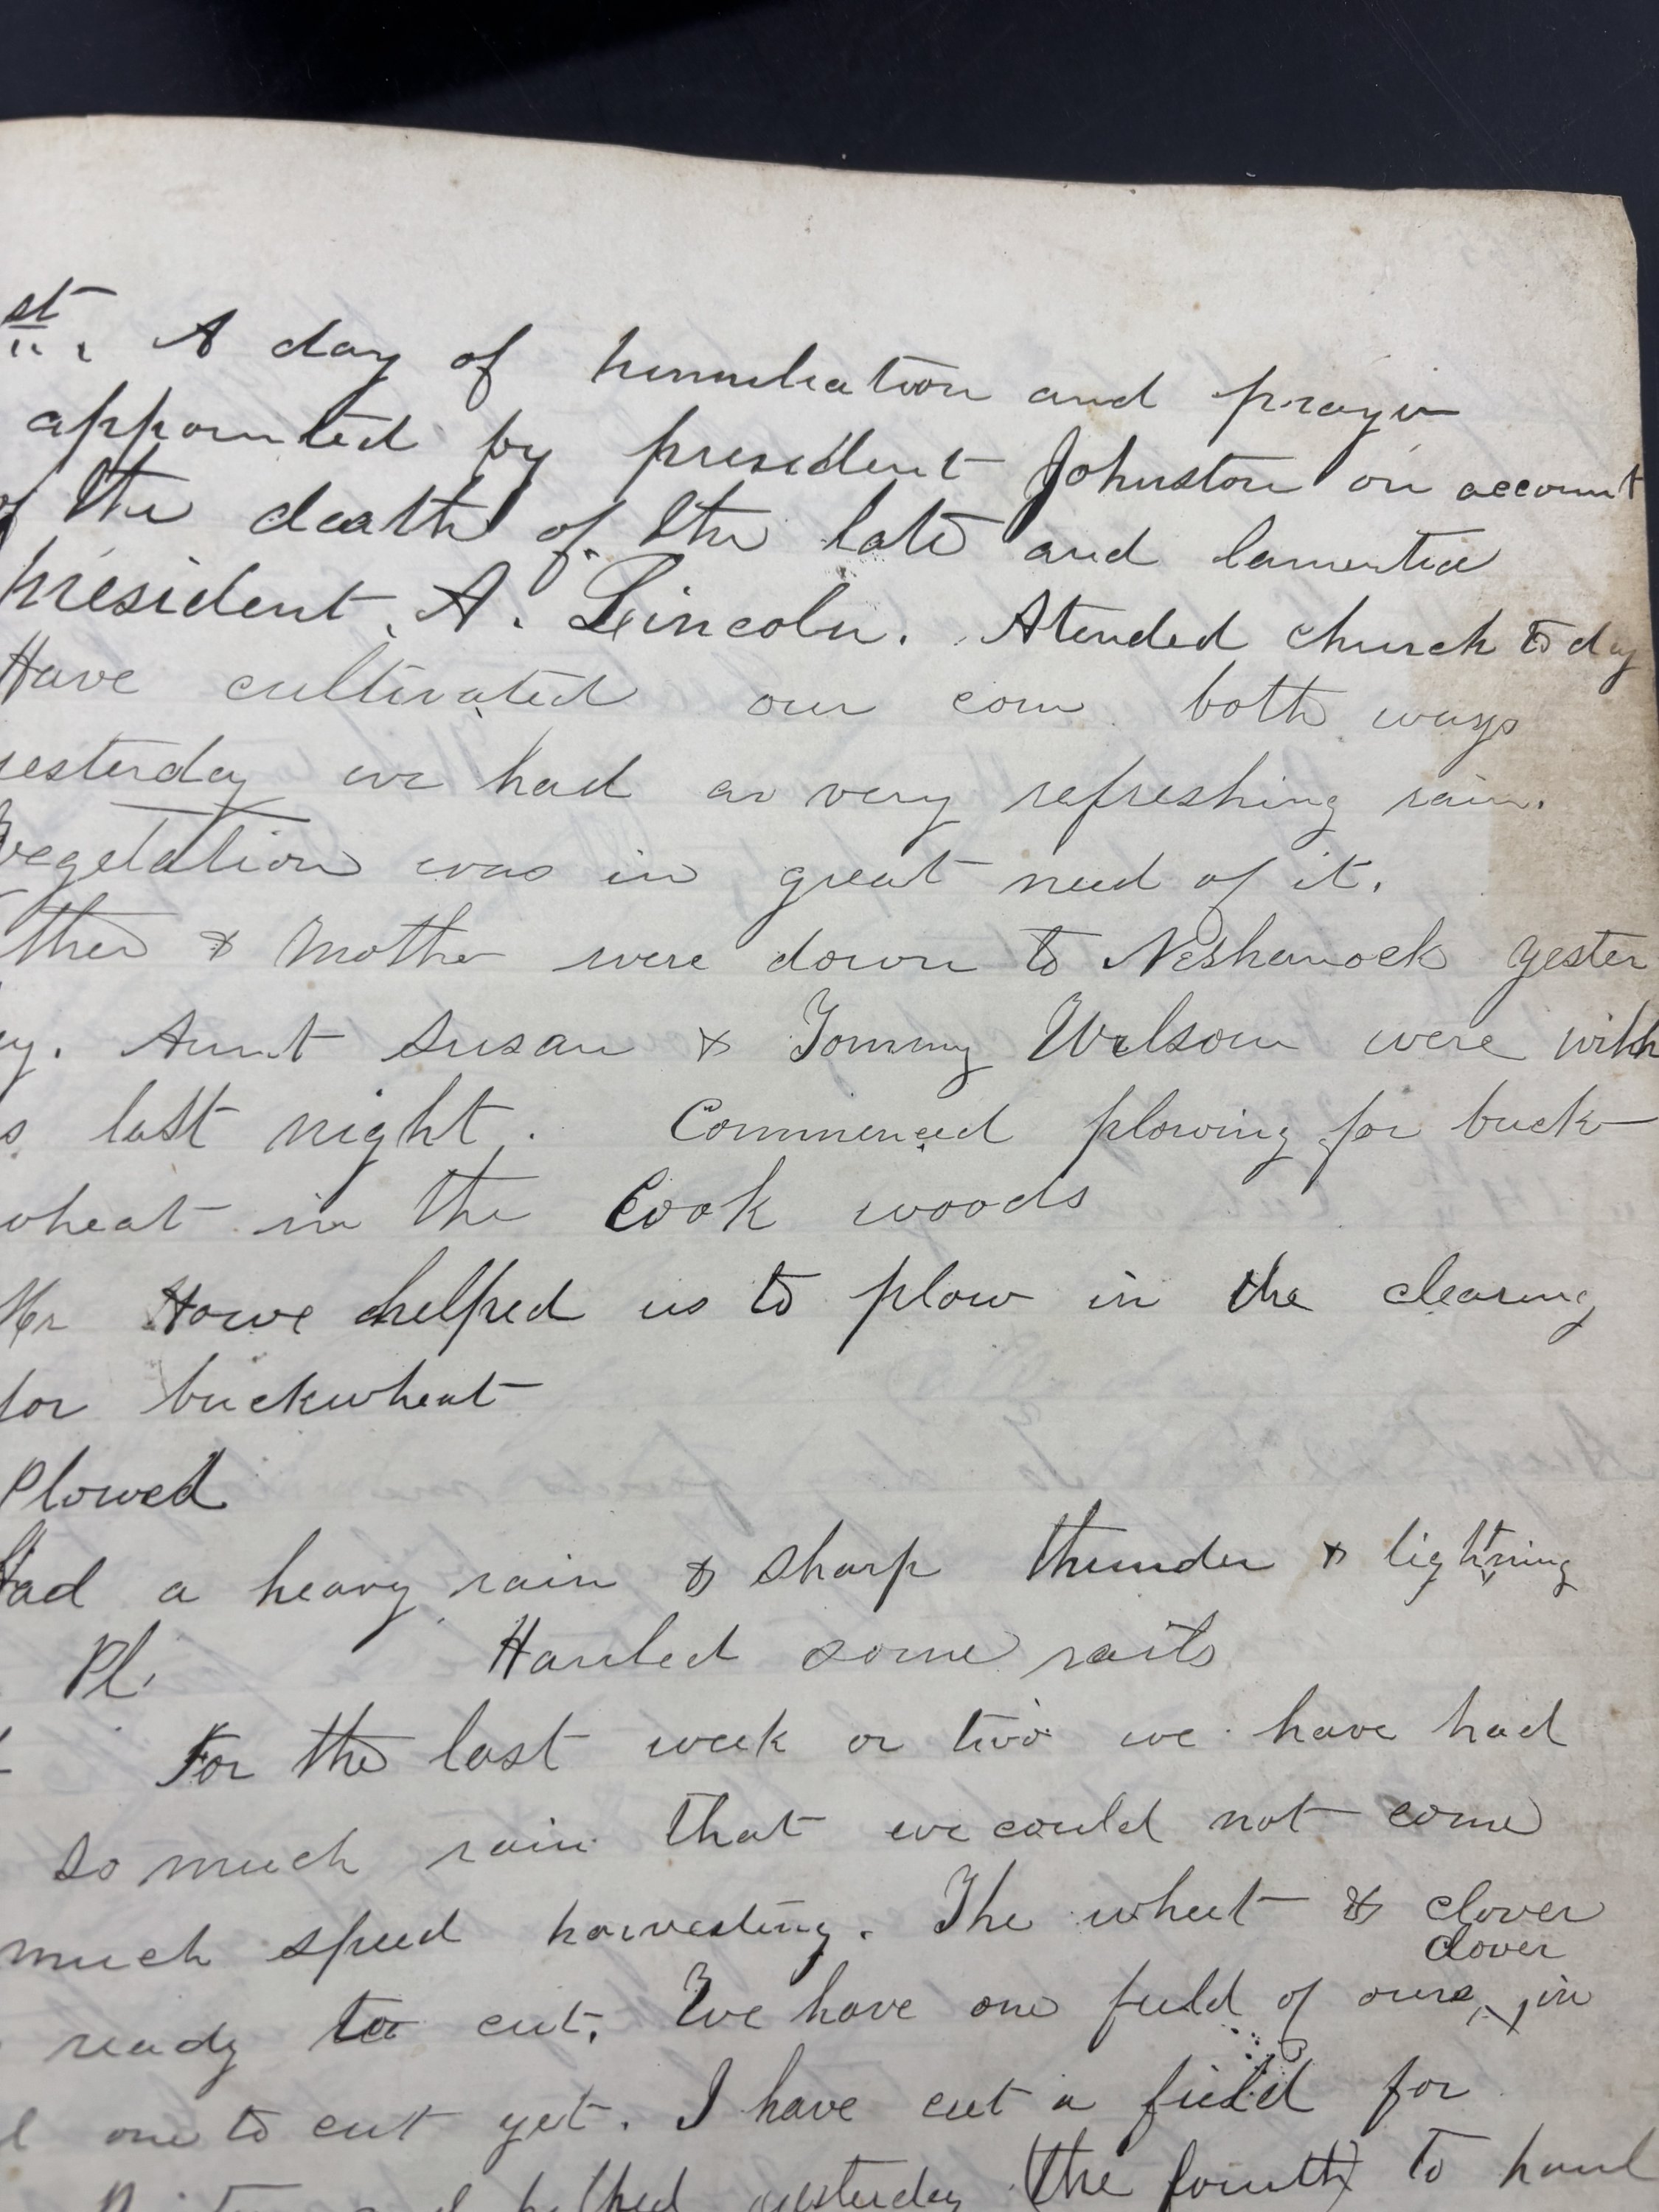 st. A day of humuliation and prayer
appointed by president Johnston on account
of the death of the late and lamented
president, A. Lincoln. Atended church to day
Have cultivated our corn both ways
yesterday we had a very refreshing rain.
Vegetation was in great need of it.
ther & Mother were down to Neshanock yester
ay. Aunt Susan & Tommy Wilson were with
s last night. Commenced plowing for buck
wheat in the Cook woods
Mr Howe helped us to plow in the clearing
for buckwheat
Plowed
Had a heavy rain & sharp thunder & lightning
Pl. Hauled some rails
For the last week or two we have had
so much rain that we could not come
much speed harvesting. The wheat & clover
clover
ready to cut. We have one field of ours, in
one to cut yet. I have cut a field for
helped yesterday (the fourth) to haul